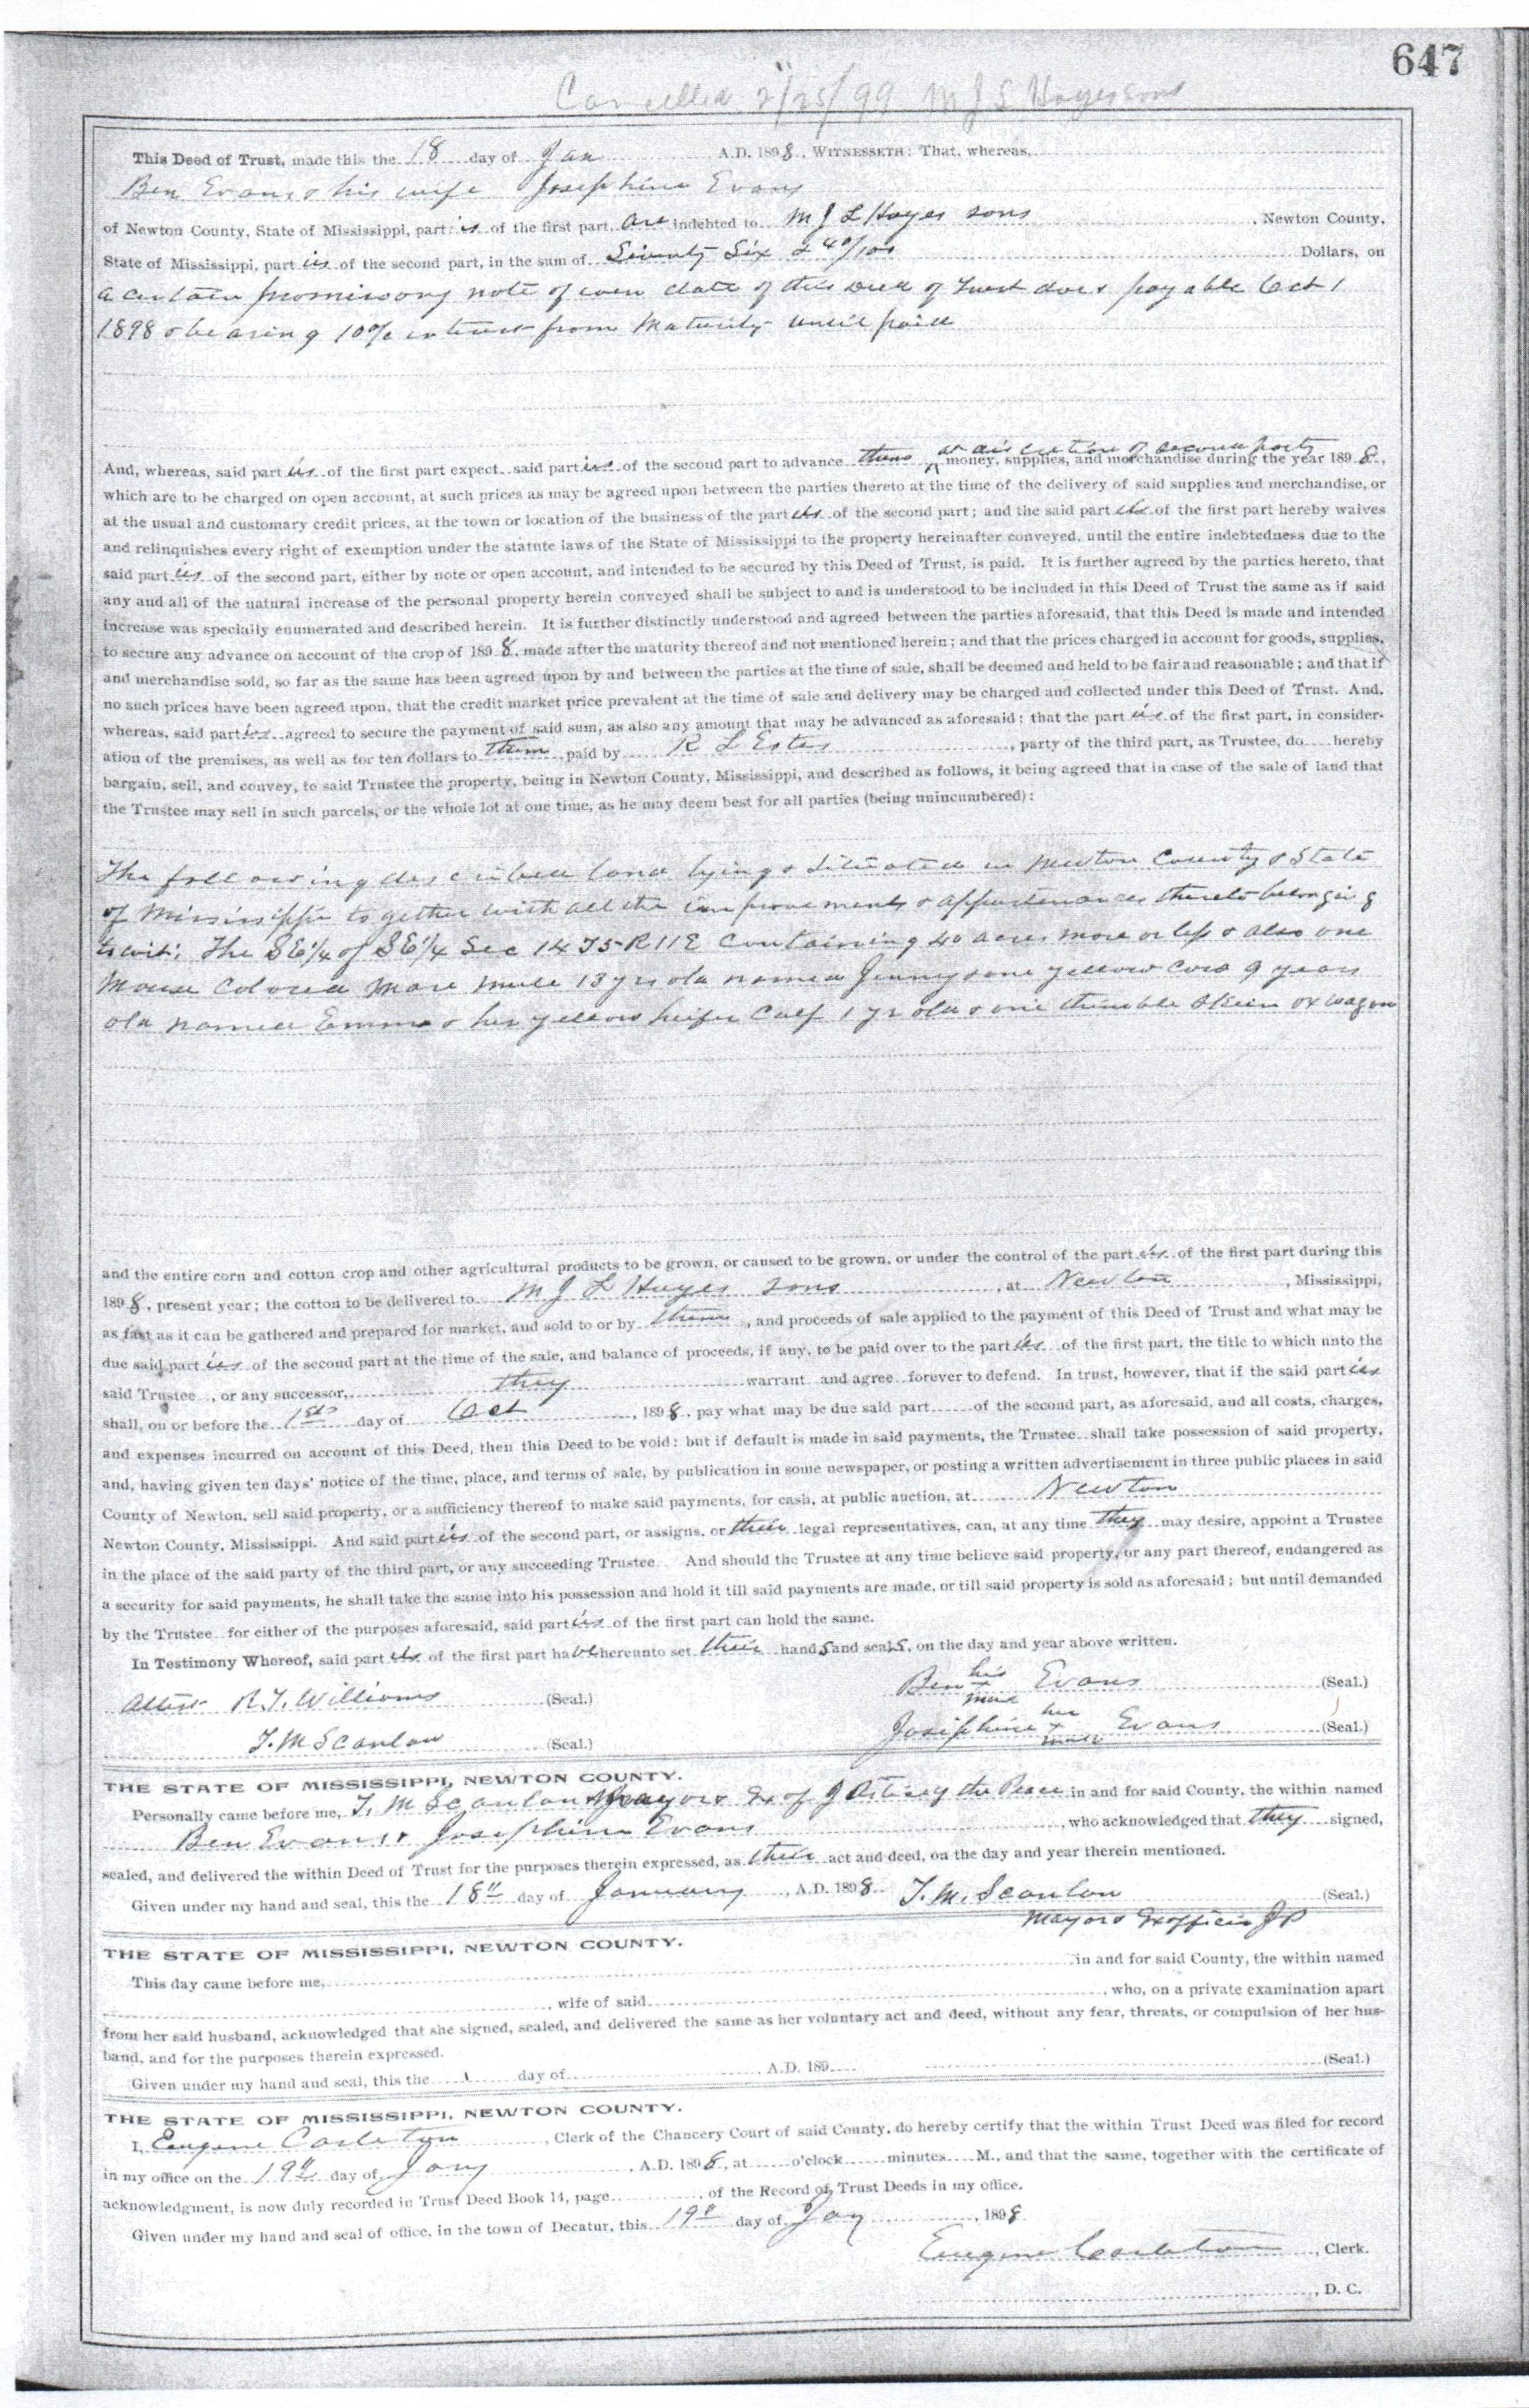 647
Cancelled 2/25/99 M J L Hayes sons
This Deed of Trust, made this the 18 day of Jan A.D. 1898, WITNESSETH: That, whereas,
Ben Evans & his wife Josephine Evans
of Newton County, State of Mississippi, parties of the first part, are indebted to M J L Hayes sons, Newton County,
State of Mississippi, parties of the second part, in the sum of Seventy Six & 40/100 Dollars, on
a certain promissory note of even date of this Deed of Trust due & payable Oct 1
1898 & bearing 10% interest from maturity until paid
at discretion of second party
And, whereas, said parties of the first part expect said parties of the second part to advance them money, supplies, and merchandise during the year 1898,
which are to be charged on open account, at such prices as may be agreed upon between the parties thereto at the time of the delivery of said supplies and merchandise, or
at the usual and customary credit prices, at the town or location of the business of the parties of the second part; and the said parties of the first part hereby waives
and relinquishes every right of exemption under the statute laws of the State of Mississippi to the property hereinafter conveyed, until the entire indebtedness due to the
said parties of the second part, either by note or open account, and intended to be secured by this Deed of Trust, is paid. It is further agreed by the parties hereto, that
any and all of the natural increase of the personal property herein conveyed shall be subject to and is understood to be included in this Deed of Trust the same as if said
increase was specially enumerated and described herein. It is further distinctly understood and agreed between the parties aforesaid, that this Deed is made and intended
to secure any advance on account of the crop of 1898, made after the maturity thereof and not mentioned herein; and that the prices charged in account for goods, supplies,
and merchandise sold, so far as the same has been agreed upon by and between the parties at the time of sale, shall be deemed and held to be fair and reasonable; and that if
no such prices have been agreed upon, that the credit market price prevalent at the time of sale and delivery may be charged and collected under this Deed of Trust. And,
whereas, said parties agreed to secure the payment of said sum, as also any amount that may be advanced as aforesaid; that the parties of the first part, in consider-
ation of the premises, as well as for ten dollars to them, paid by R L Estes, party of the third part, as Trustee, do hereby
bargain, sell, and convey, to said Trustee the property, being in Newton County, Mississippi, and described as follows, it being agreed that in case of the sale of land that
the Trustee may sell in such parcels, or the whole lot at one time, as he may deem best for all parties (being unincumbered):
The following described land lying & situated in Newton County & State
of Mississippi together with all the improvements & appurtenances thereto belonging
to wit: The SE1/4 of SE1/4 Sec 14 T5 R11E containing 40 acres more or less & also one
Mouse Colored Mare mule 13 yrs old named Jenny & one yellow Cow 9 years
old named Emma & her yellow heifer Calf 1 yr old & one thimble skein ox wagon
and the entire corn and cotton crop and other agricultural products to be grown, or caused to be grown, or under the control of the parties of the first part during this
1898, present year; the cotton to be delivered to M J L Hayes sons, at Newton, Mississippi,
as fast as it can be gathered and prepared for market, and sold to or by them, and proceeds of sale applied to the payment of this Deed of Trust and what may be
due said parties of the second part at the time of the sale, and balance of proceeds, if any, to be paid over to the parties of the first part, the title to which unto the
said Trustee, or any successor, they warrant and agree forever to defend. In trust, however, that if the said parties
shall, on or before the 1st day of Oct, 1898, pay what may be due said part of the second part, as aforesaid, and all costs, charges,
and expenses incurred on account of this Deed, then this Deed to be void: but if default is made in said payments, the Trustee shall take possession of said property,
and, having given ten days' notice of the time, place, and terms of sale, by publication in some newspaper, or posting a written advertisement in three public places in said
County of Newton, sell said property, or a sufficiency thereof to make said payments, for cash, at public auction, at Newton
Newton County, Mississippi. And said parties of the second part, or assigns, or their legal representatives, can, at any time they may desire, appoint a Trustee
in the place of the said party of the third part, or any succeeding Trustee. And should the Trustee at any time believe said property, or any part thereof, endangered as
a security for said payments, he shall take the same into his possession and hold it till said payments are made, or till said property is sold as aforesaid; but until demanded
by the Trustee for either of the purposes aforesaid, said parties of the first part can hold the same.
In Testimony Whereof, said parties of the first part have hereunto set their hands and seals, on the day and year above written.
Attest R.T. Williams (Seal.) Ben his x mark Evans (Seal.)
T. M Scanlan (Seal.) Josephine her x mark Evans (Seal.)
THE STATE OF MISSISSIPPI, NEWTON COUNTY.
Personally came before me, T. M Scanlan Mayor & Ex of Justice of the Peace in and for said County, the within named
Ben Evans & Josephine Evans, who acknowledged that they signed,
sealed, and delivered the within Deed of Trust for the purposes therein expressed, as their act and deed, on the day and year therein mentioned.
Given under my hand and seal, this the 18" day of January, A.D. 1898. T. M. Scanlan (Seal.)
Mayor & Exofficio JP
THE STATE OF MISSISSIPPI, NEWTON COUNTY.
This day came before me, in and for said County, the within named
, wife of said, who, on a private examination apart
from her said husband, acknowledged that she signed, sealed, and delivered the same as her voluntary act and deed, without any fear, threats, or compulsion of her hus-
band, and for the purposes therein expressed.
Given under my hand and seal, this the day of A.D. 189 (Seal.)
THE STATE OF MISSISSIPPI, NEWTON COUNTY.
I, Eugene Carleton, Clerk of the Chancery Court of said County, do hereby certify that the within Trust Deed was filed for record
in my office on the 19th day of Jany, A.D. 1898, at o'clock minutes M., and that the same, together with the certificate of
acknowledgment, is now duly recorded in Trust Deed Book 14, page, of the Record of Trust Deeds in my office.
Given under my hand and seal of office, in the town of Decatur, this 19th day of Jany, 1898
Eugene Carleton, Clerk.
, D. C.